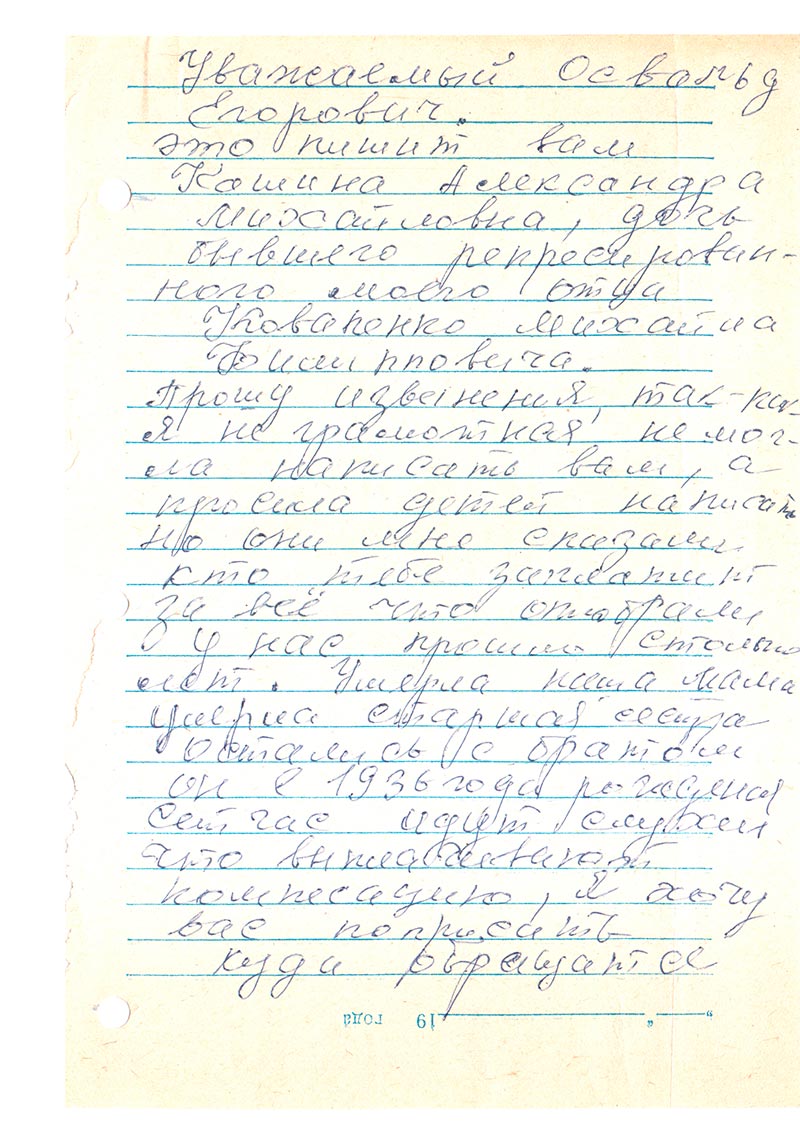 Уважаемый Освальд
Егорович.
это пишит вам
Кошина Александра
Михайловна, дочь
бывшего репресирован-
ного моего отца
Коваленко Михаила
Филипповича.
Прошу извенения, так-как
я не грамотная не мог-
ла написать вам, а
просила детей написать
но они мне сказали
кто тебе заплатит
за всё что отобрали
у нас прошло столько
лет. Умерла наша мама
умерла старшая сестра
остались с братом
он с 1936 года рождения
сейчас идут слухи
что выплачивают
компесацию, я хочу
вас попросить
куда обращатся
" " 19 года